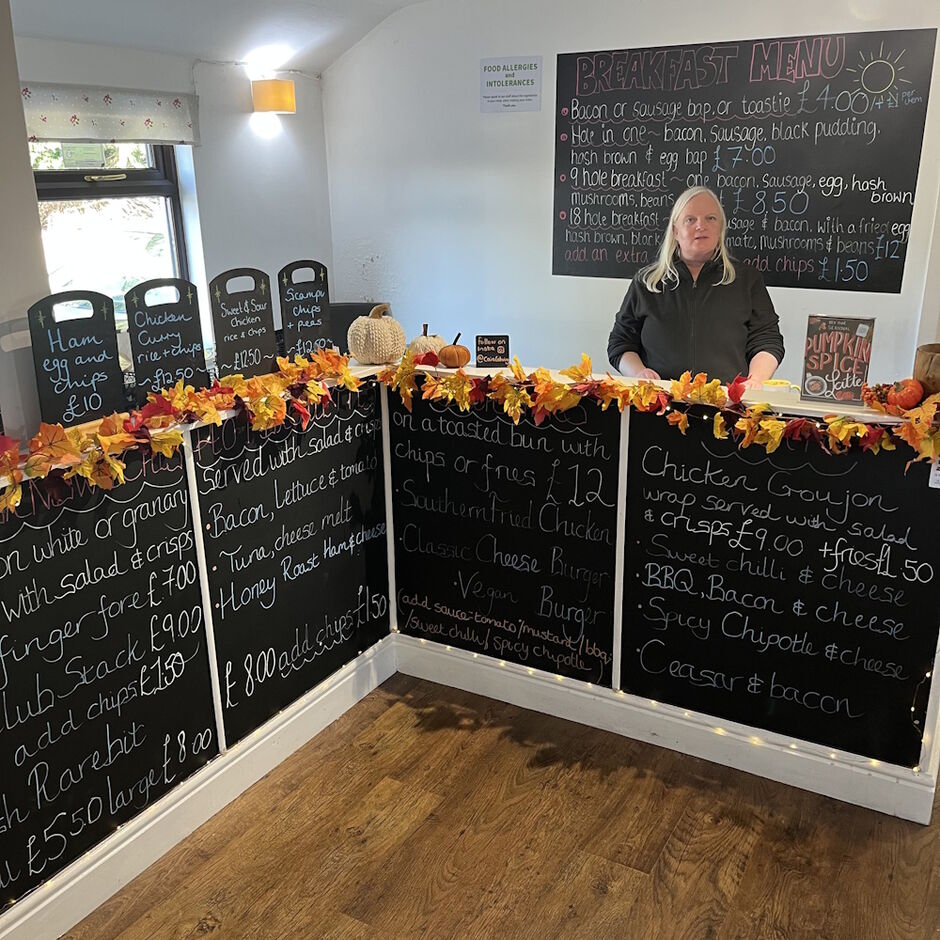 FOOD ALLERGIES
and
INTOLERANCES
BREAKFAST MENU
Bacon or sausage bap, or toastie £4.00/+£1 per item
Hole in one ~ bacon, sausage, black pudding,
hash brown & egg bap £7.00
9 hole breakfast ~ one bacon, sausage, egg, hash brown
mushrooms, beans £8.50
18 hole breakfast sausage & bacon, with a fried egg
hash brown, black mato, mushrooms & beans £12
add an extra add chips £1.50
Ham
egg and
chips
£10
Chicken
Curry
rice + chips
~ £12.50
Sweet & Sour
Chicken
rice & chips
~ £12.50
Scampi
chips
+ peas
follow on
insta
PUMPKIN
SPICE
Latte
on white or granary
with salad & crisps
finger fore £7.00
lub Stack £9.00
add chips £1.50
sh Rarebit
£5.50 large £8.00
Served with salad & crisps
• Bacon, lettuce & tomato
• Tuna, cheese melt
• Honey Roast Ham & cheese
£8.00 add chips £1.50
on a toasted bun with
chips or fries £12
• Southern Fried Chicken
• Classic Cheese Burger
• Vegan Burger
(add sauce - tomato/mustard/bbq
/sweet chilli/spicy chipotle
Chicken Goujon
wrap served with salad
& crisps £9.00 + fries £1.50
• Sweet chilli & cheese
• BBQ, Bacon & cheese
• Spicy Chipotle & cheese
• Ceasar & bacon